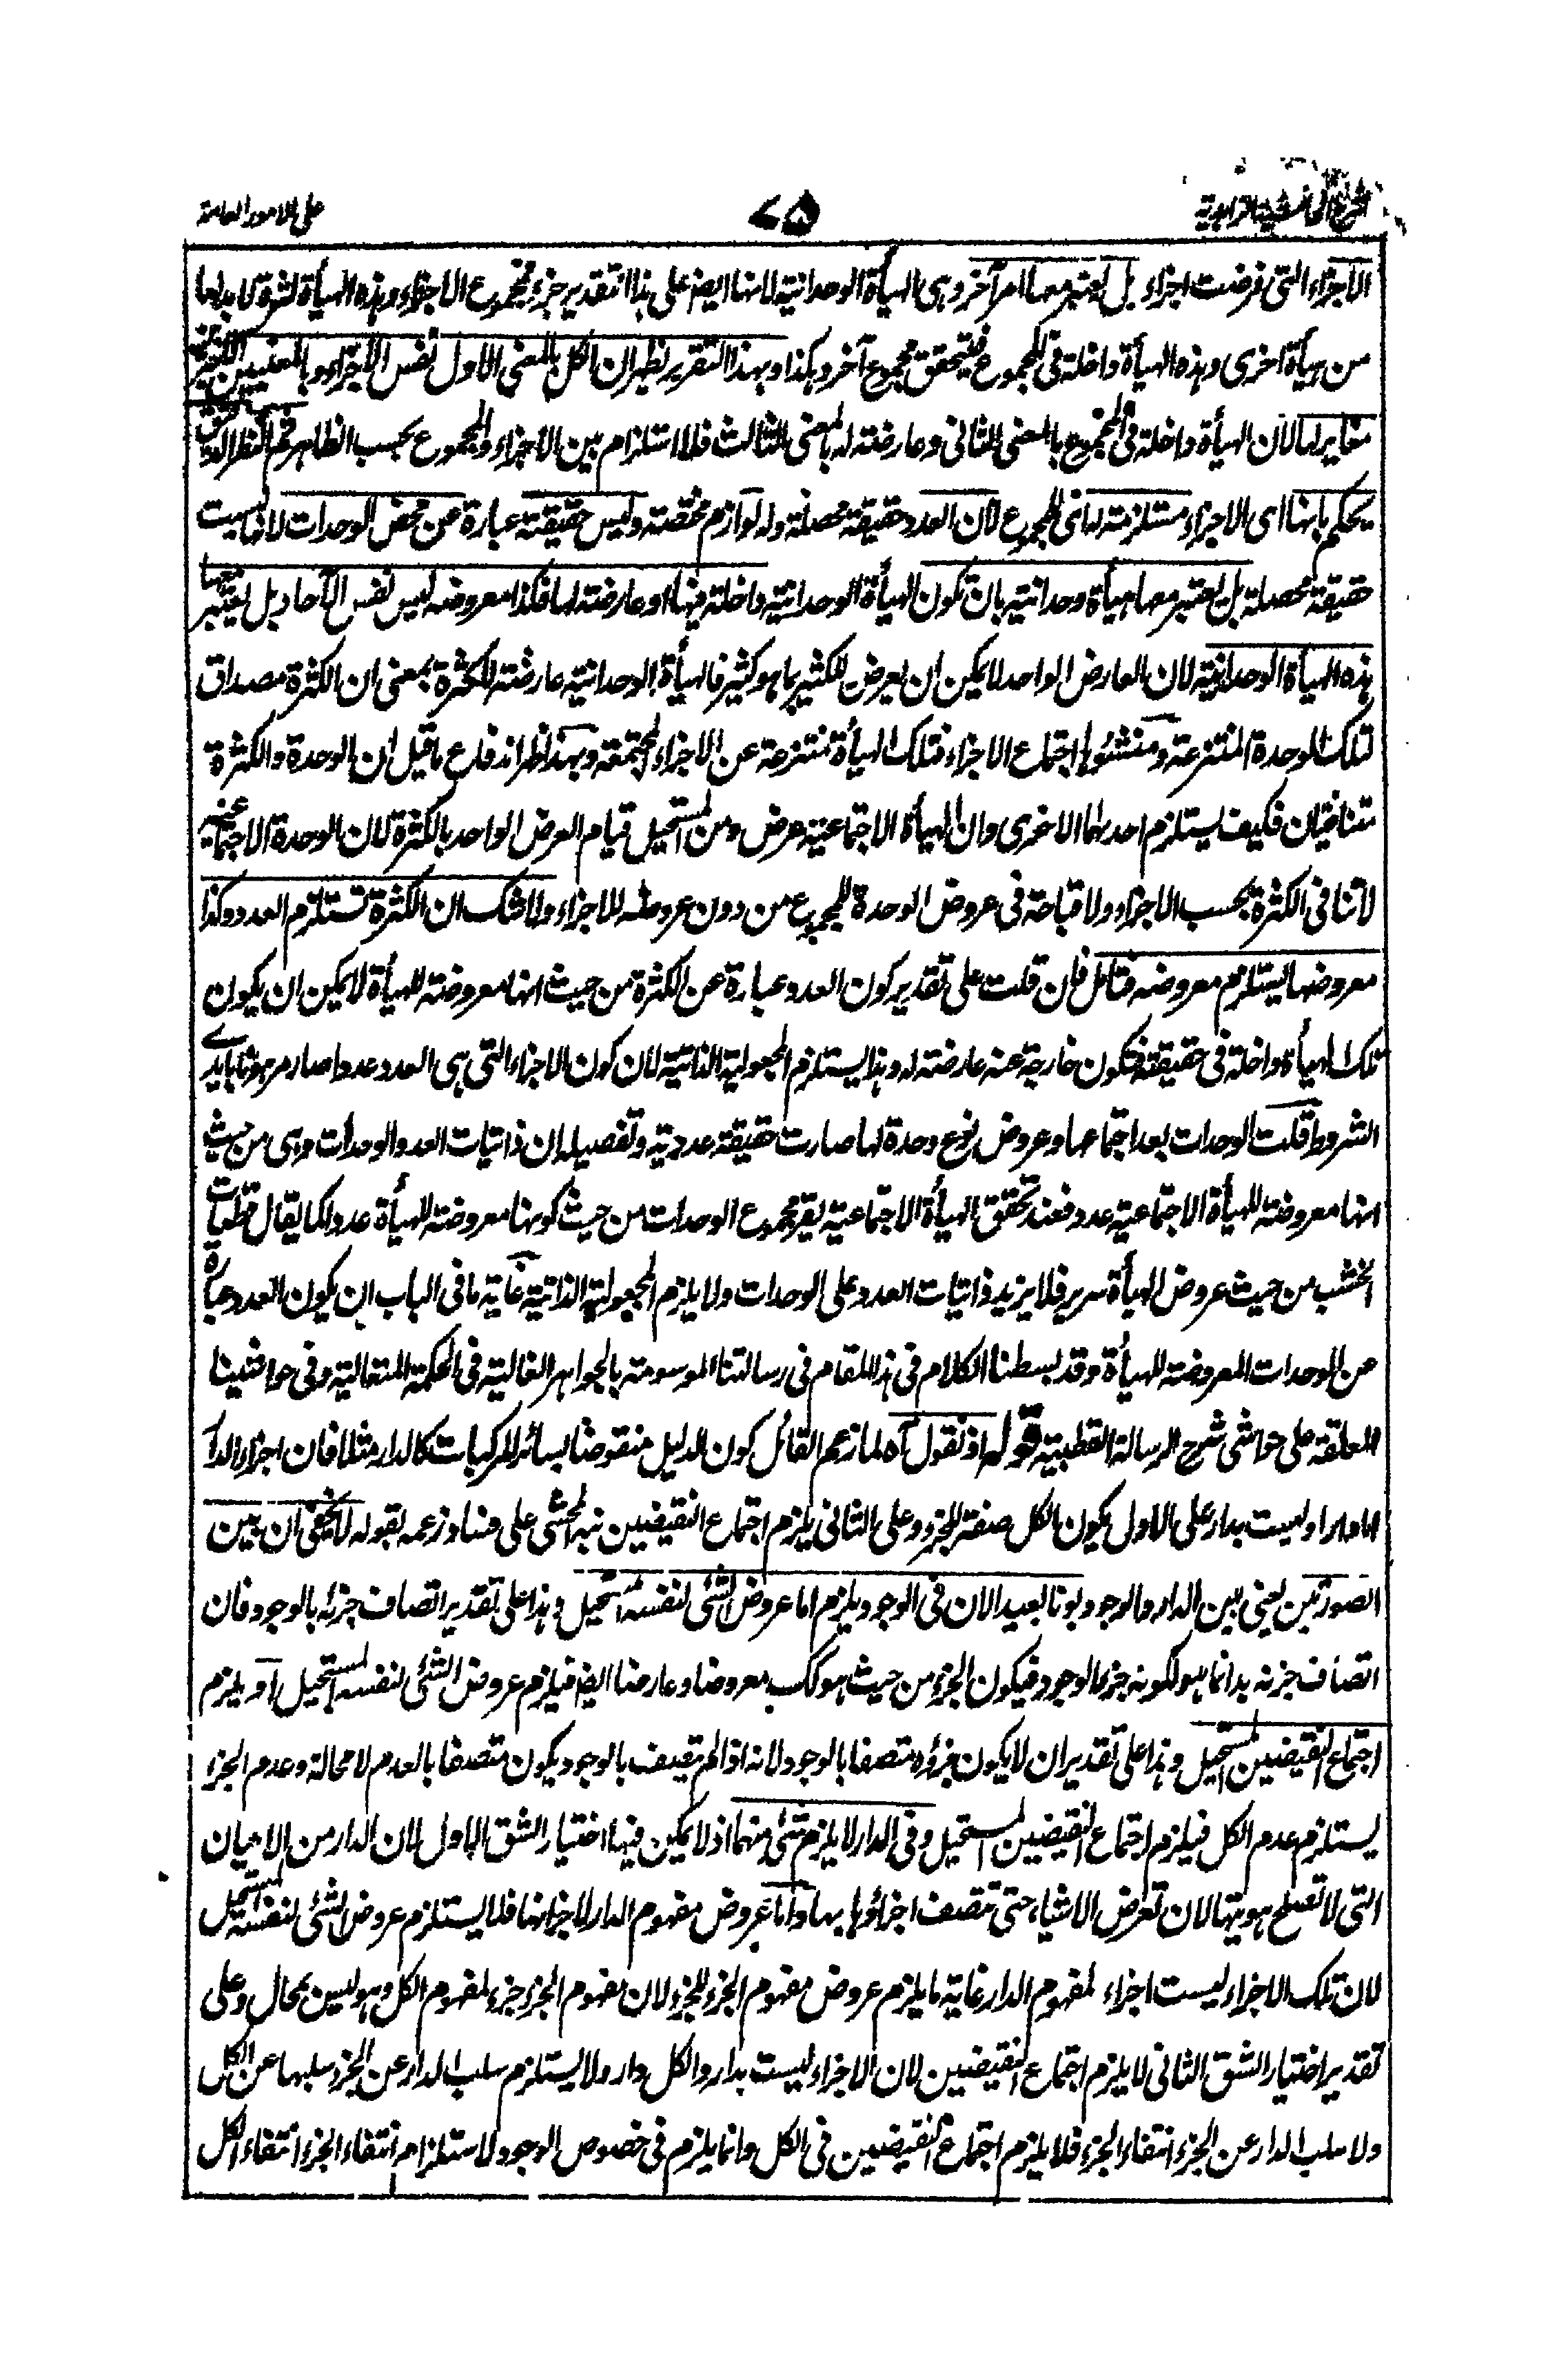 على الامور العامة
٧٥
الاجزاء التى فرضت اجزاء بل يعتبر معها امر آخر وهى الهيأة الوحدانية لانها ايضا على هذا التقدير جزء فمجموع الاجزاء وهذه الهيأة كثرة لا بد لها
من هيأة اخرى وهذه الهيأة داخلة فى المجموع فيتحقق مجموع آخر وهكذا وبهذا التقرير ظهر ان الكل بالمعنى الاول نفس الاجزاء وبالمعنيين الاخيرين
مغاير لها لان الهيأة داخلة فى المجموع بالمعنى الثانى وعارضته له بالمعنى الثالث فلا استلزام بين الاجزاء والمجموع بحسب الظاهر ثم النظر الدقيق
يحكم بانها اى الاجزاء مستلزمة له اى المجموع لان العدد حقيقة محصلة وله لوازم مختصة وليس حقيقته عبارة عن محض الوحدات لانها ليست
حقيقة محصلة بل يعتبر معها هيأة وحدانية بان تكون الهيأة الوحدانية داخلة فيها او عارضة لها فكذا معروضه ليس نفس الآحاد بل يعتبر معها
هذه الهيأة الوحدانية لان العارض الواحد لا يمكن ان يعرض للكثير بما هو كثير فالهيأة الوحدانية عارضة للكثرة بمعنى ان الكثرة مصداق
لتلك الوحدة المنتزعة ومنشئولها اجتماع الاجزاء فتلك الهيأة منتزعة عن الاجزاء المجتمعة وبهذا ظهر اندفاع ما قيل ان الوحدة والكثرة
متنافيتان فكيف يستلزم احدهما الاخرى وان الهيأة الاجتماعية عرض ومن المستحيل قيام العرض الواحد بالكثرة لان الوحدة الاجتماعية
لا تنافى الكثرة بحسب الاجزاء ولا قباحة فى عروض الوحدة للمجموع من دون عروضه للاجزاء ولا شك ان الكثرة تستلزم العدد وكذا
معروضها يستلزم معروضه فتامل فان قلت على تقدير كون العدد عبارة عن الكثرة من حيث انها معروضة للهيأة لا يمكن ان يكون
تلك الهيأة داخلة فى حقيقته فتكون خارجة عنه عارضة له وهذا يستلزم المجعولية الذاتية لان كون الاجزاء التى هى العدد عددا صار مرهونا بايدى
الشروط قلت الوحدات بعد اجتماعها وعروض نوع وحدة لها صارت حقيقة عددية وتفصيله ان ذاتيات العدد الوحدات وهى من حيث
انها معروضة للهيأة الاجتماعية عدد فعند تحقق الهيأة الاجتماعية يقر مجموع الوحدات من حيث كونها معروضة للهيأة عددا كما يقال قطعات
الخشب من حيث عروض الهيأة سرير فلا يزيد ذاتيات العدد على الوحدات ولا يلزم المجعولية الذاتية غاية ما فى الباب ان يكون العدد عبارة
عن الوحدات المعروضة للهيأة وقد بسطنا الكلام فى هذا المقام فى رسالتنا الموسومة بالجواهر الغالية فى الحكمة المتعالية وفى حواشينا
المعلقة على حواشى شرح الرسالة القطبية قوله او نقول آه لما زعم القائل كون الدليل منقوضا بسائر المركبات كالدار مثلا فان اجزاء الدار
اما دار او ليست بدار على الاول يكون الكل صفة للجزء وعلى الثانى يلزم اجتماع النقيضين نبه المحشى على فساد زعمه بقوله لا يخفى ان بين
الصورتين يعنى بين الدار والوجود بونا بعيدا لان فى الوجود يلزم اما عروض الشئ لنفسه المستحيل وهذا على تقدير اتصاف جزئه بالوجود فان
اتصاف جزئه به انما هو لكونه جزءا لوجود فيكون الجزء من حيث هو كك معروضا وعارضا ايضا فيلزم عروض الشئ لنفسه المستحيل او يلزم
اجتماع النقيضين المستحيل وهذا على تقدير ان لا يكون جزؤه متصفا بالوجود لانه اذا لم يتصف بالوجود يكون متصفا بالعدم لا محالة وعدم الجزء
يستلزم عدم الكل فيلزم اجتماع النقيضين المستحيل وفى الدار لا يلزم شئ منهما اذ لا يمكن فيها اختيار الشق الاول لان الدار من الاعيان
التى لا تصلح هويتها لان تعرض الاشياء حتى تتصف اجزاؤها بها واما عروض مفهوم الدار لاجزائها فلا يستلزم عروض الشئ لنفسه المستحيل
لان تلك الاجزاء ليست اجزاء لمفهوم الدار غاية ما يلزم عروض مفهوم الجزء للجزء لان مفهوم الجزء جزء لمفهوم الكل وهو ليس بمحال وعلى
تقدير اختيار الشق الثانى لا يلزم اجتماع النقيضين لان الاجزاء ليست بدار والكل دار ولا يستلزم سلب الدار عن الجزء سلبها عن الكل
ولا سلب الدار عن الجزء انتفاء الجزء فلا يلزم اجتماع النقيضين فى الكل وانما يلزم فى خصوص الوجود لاستلزامه انتفاء الجزء انتفاء الكل